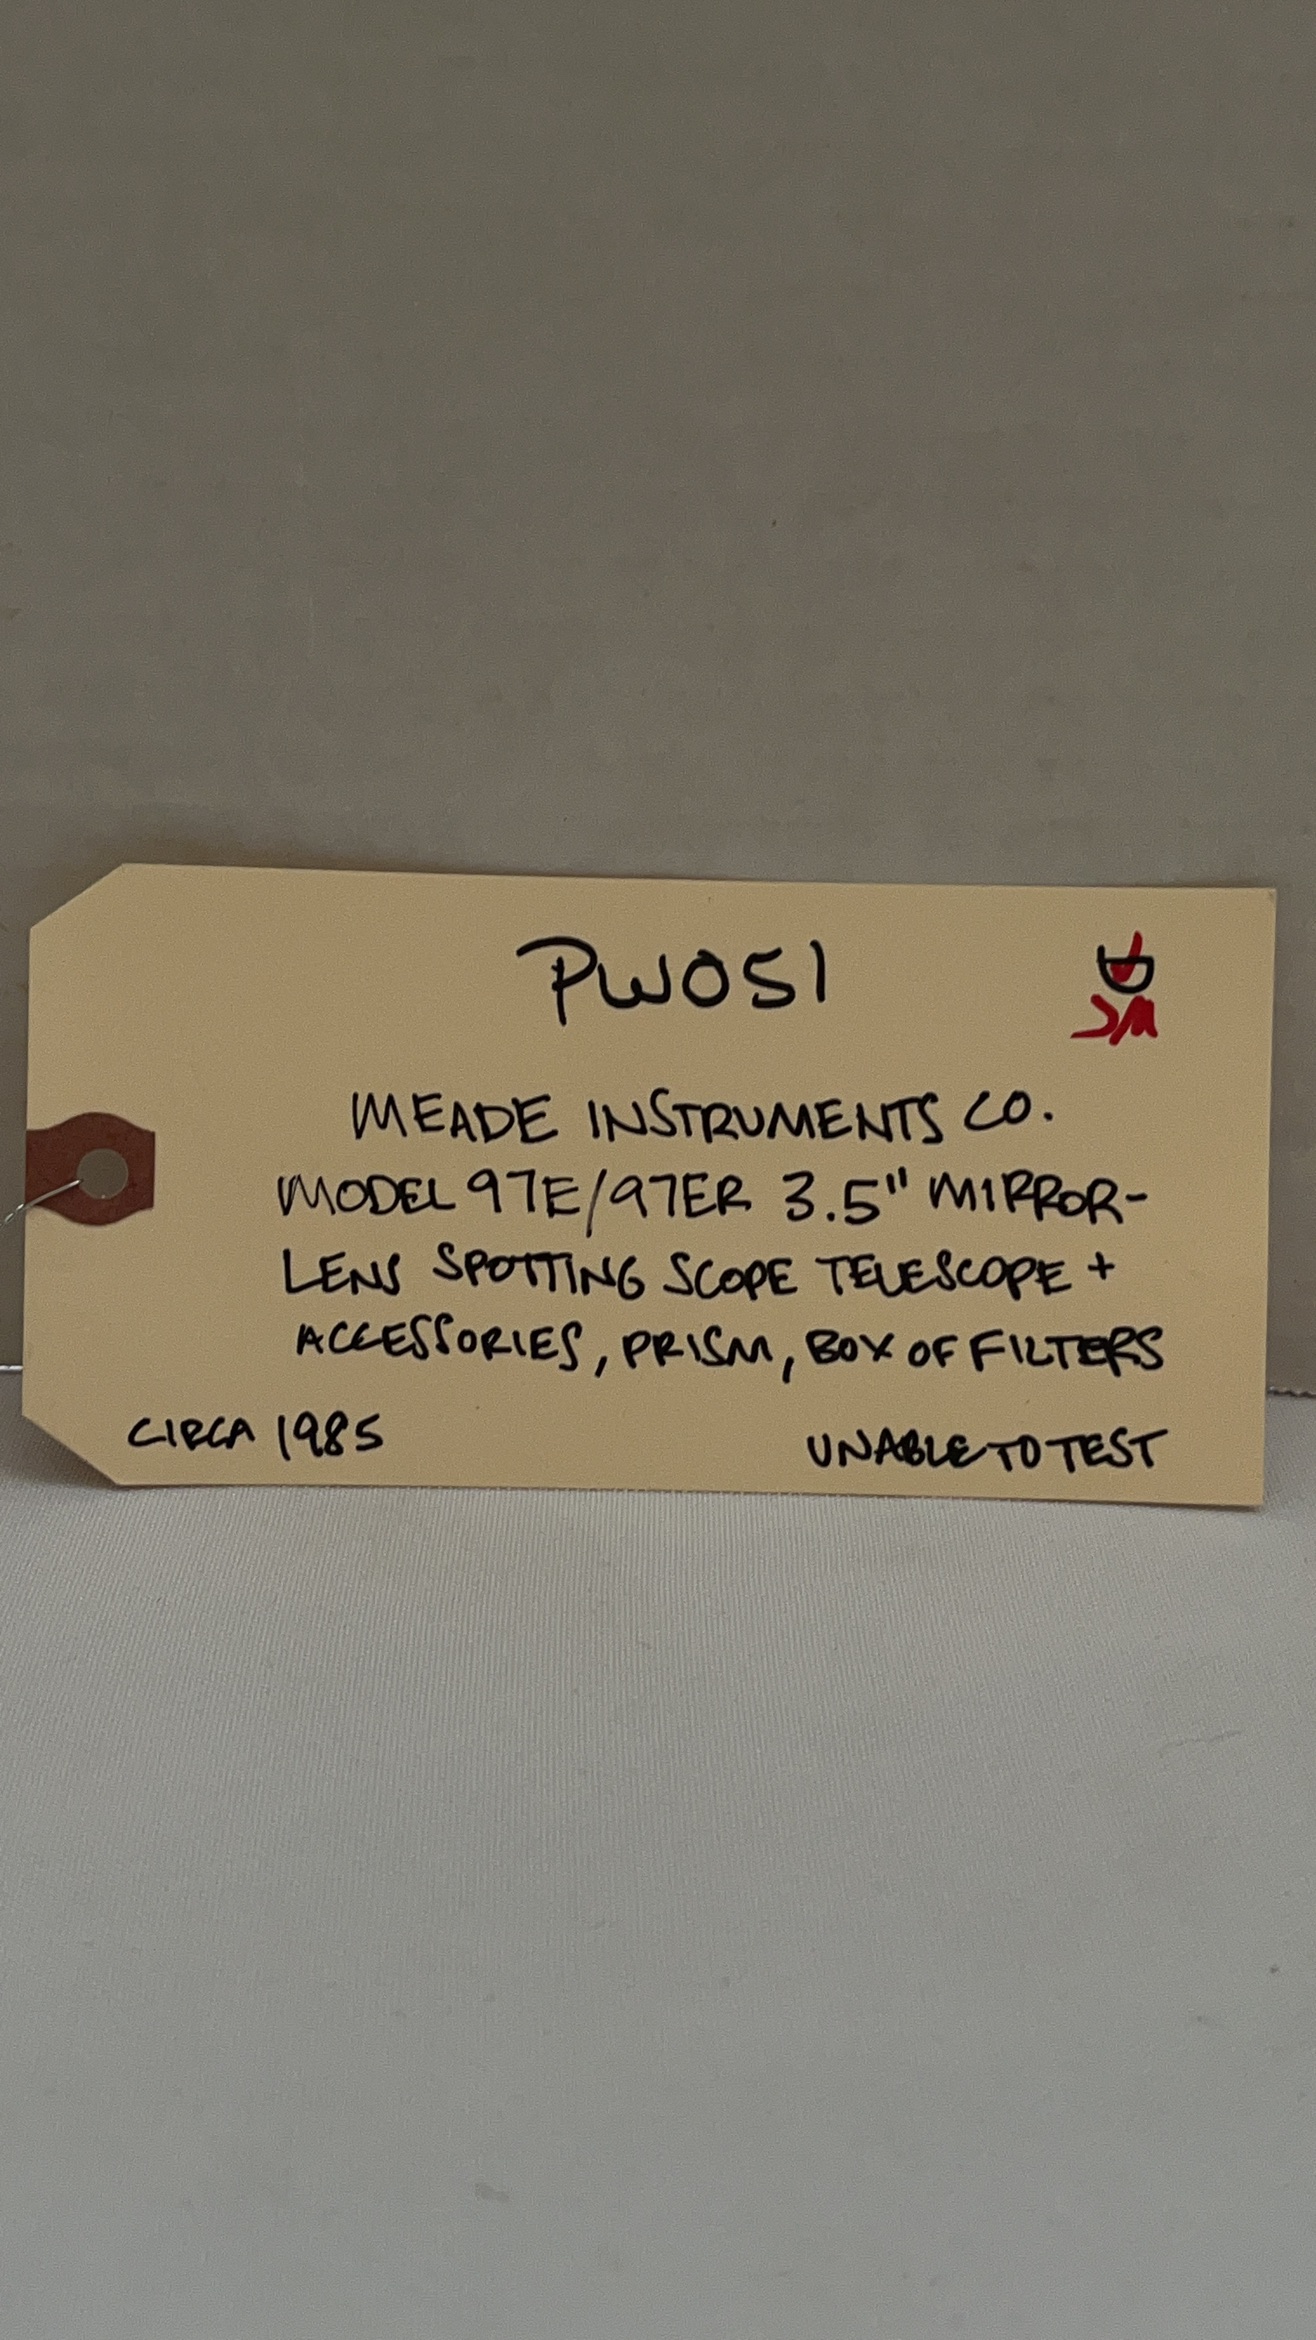 PW051
JM
MEADE INSTRUMENTS CO.
MODEL 97E/97ER 3.5" MIRROR-
LENS SPOTTING SCOPE TELESCOPE +
ACCESSORIES, PRISM, BOX OF FILTERS
CIRCA 1985
UNABLE TO TEST